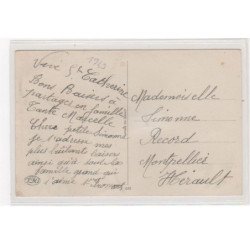 1943
Vive Ste Catherine
Bons Baisers à
partager en famille
Tante Marcelle
Chère petite Simone
je t'adresse mes
plus vaillants baisers
ainsi qu'à toute la
famille grand qui
t'aime
Mademoiselle
Simonne
Record
Montpellier
Hérault